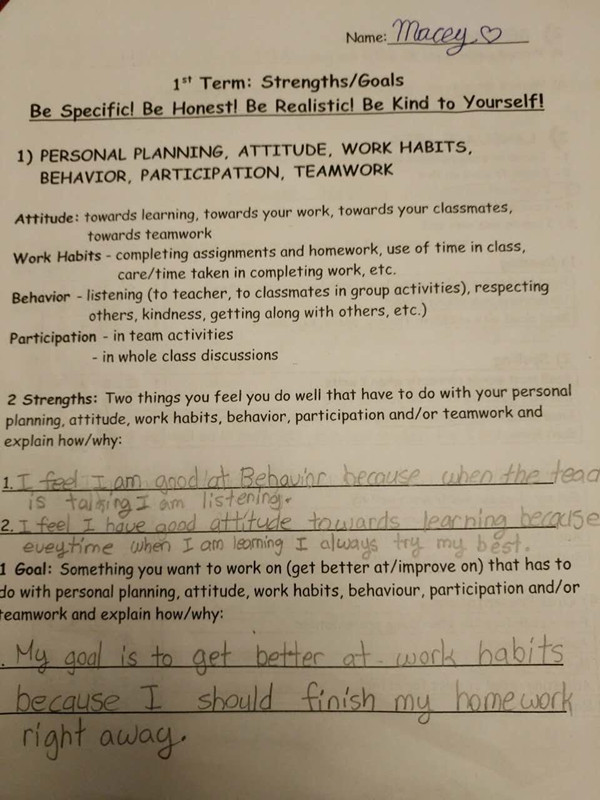 Name: Macey ♡
1st Term: Strengths/Goals
Be Specific! Be Honest! Be Realistic! Be Kind to Yourself!
1) PERSONAL PLANNING, ATTITUDE, WORK HABITS,
BEHAVIOR, PARTICIPATION, TEAMWORK
Attitude: towards learning, towards your work, towards your classmates,
towards teamwork
Work Habits - completing assignments and homework, use of time in class,
care/time taken in completing work, etc.
Behavior - listening (to teacher, to classmates in group activities), respecting
others, kindness, getting along with others, etc.)
Participation - in team activities
- in whole class discussions
2 Strengths: Two things you feel you do well that have to do with your personal
planning, attitude, work habits, behavior, participation and/or teamwork and
explain how/why:
1. I feel I am good at Behavior because when the teac
is talking I am listening.
2. I feel I have good attitude towards learning because
eveytime when I am learning I always try my best.
1 Goal: Something you want to work on (get better at/improve on) that has to
do with personal planning, attitude, work habits, behaviour, participation and/or
teamwork and explain how/why:
. My goal is to get better at work habits
because I should finish my homework
right away.